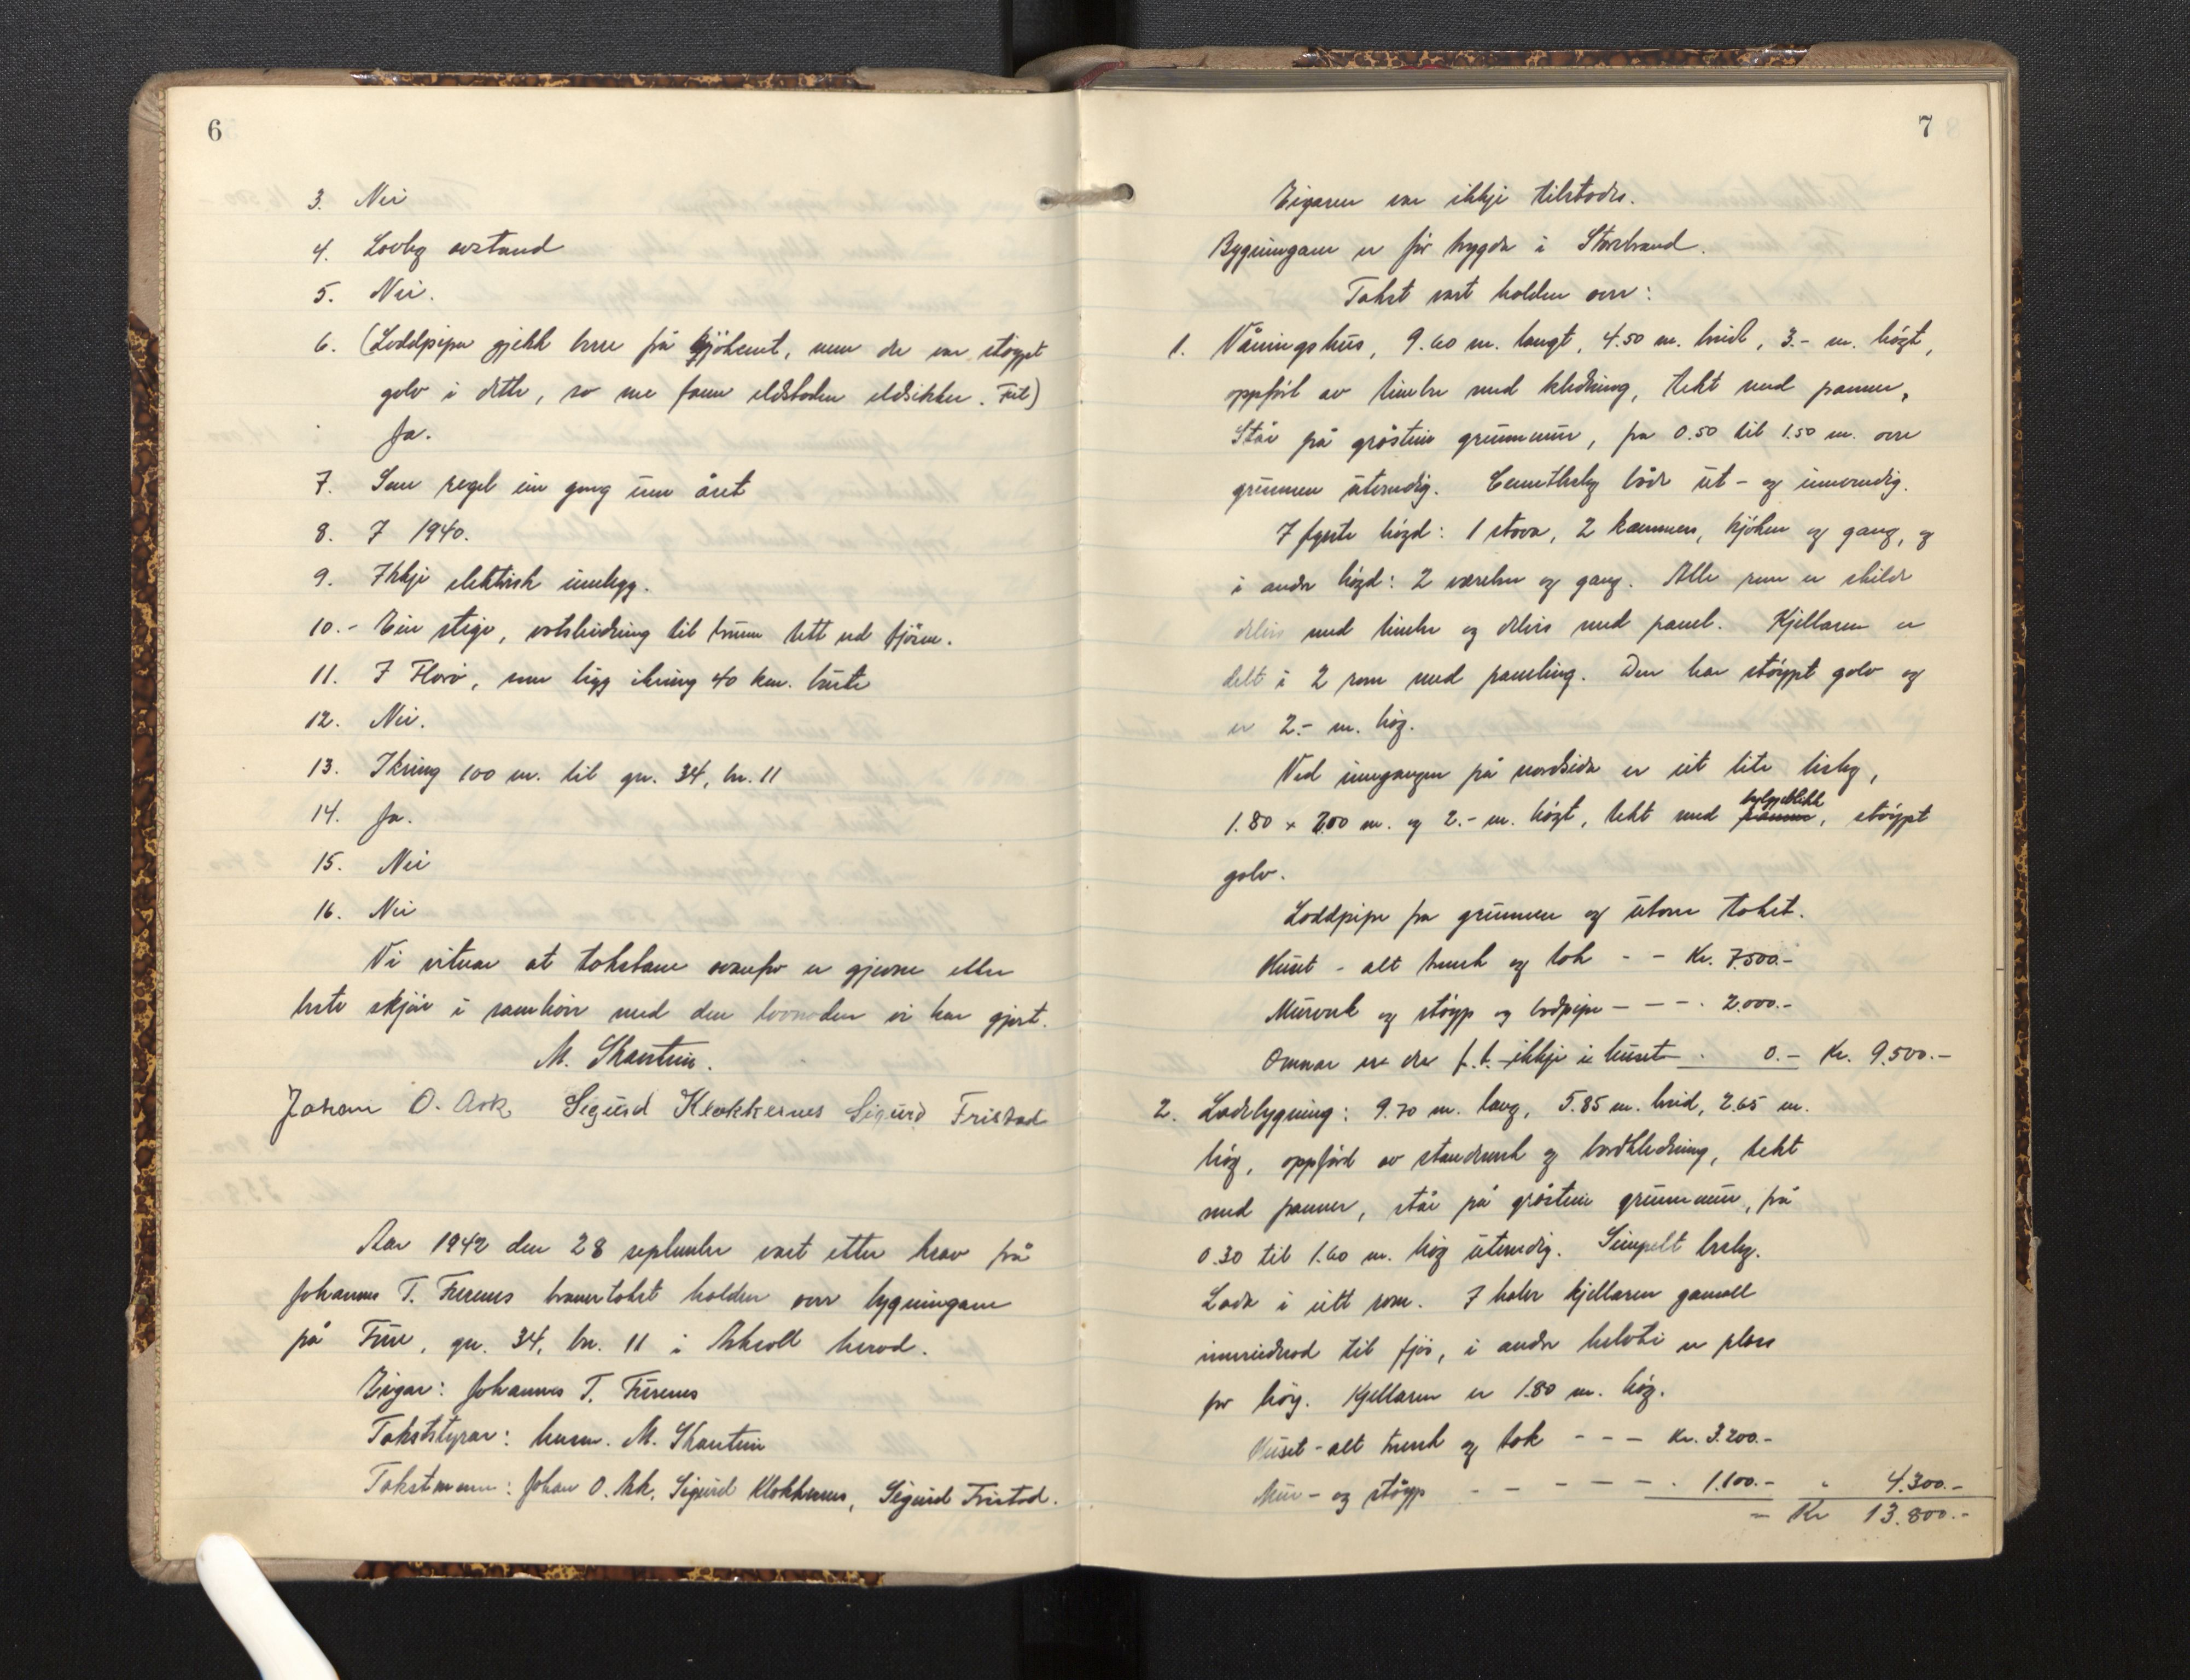 6
3. Nei
4. Lovleg avstand
5. Nei.
6. (Loddpipa gjekk berre på kjøkenet, men der var støypt
golv i dette, so me fann eldstaden eldsikker. Fût)
Ja.
7. Som regel ein gong um året
8. I 1940.
9. Ikkje elektrisk innlegg.
10.- Ein stige, vatsleidning til brunn tett ved fjøsen.
11. I Florø, som ligg ikring 40 km. burte
12. Nei.
13. Ikring 100 m. til gn. 34, bn. 11
14. Ja.
15. Nei
16. Nei
Vi vitnar at takstane ovanfor er gjevne etter
beste skjøn i samhøve med den lovnaden vi har gjort.
M. Skarstein.
Johan O. Ask Sigurd Klokkernes Sigurd Fristad
Aar 1942 den 28 september vart etter krav frå
Johannes T. Furenes branntakst halden over bygningane
på Fure, gn. 34, bn. 11 i Askvoll herad.
Eigar: Johannes T. Furenes
Takststyrar: lensm. M. Skarstein
Takstmenn: Johan O. Ask, Sigurd Klokkernes, Sigurd Fristad.
7
Eigaren var ikkje tilstades.
Bygningane er før trygda i Storebrand.
Takst vart halden over:
1. Våningshus, 9.60 m. langt, 4.50 m. breidt, 3.- m. høgt,
oppført av timber med kledning, tekt med panner,
Står på gråstein grunnmur, fra 0.50 til 1.50 m. over
grunnen utvendig. Cementbeslag både ut- og innvendig.
I fyrste høgd: 1 stova, 2 kammers, kjøken og gang, og
i andre høgd: 2 værelser og gang. Alle rom er skilde
delvis med timber og delvis med panel. Kjellaren er
delt i 2 rom med paneling. Den har støypt golv og
er 2.- m. høg.
Ved inngangen på nordsida er eit lite bislag,
1.80 x 2.00 m. og 2.- m. høgt, tekt med panner bylgjeblikk, støypt
golv.
Loddpipe fra grunnen og utover taket.
Huset - alt treverk og tak - - Kr. 7.500.-
Murverk og støyp og lodpipe - - - . 2.000.-
Omnar var der f.t. ikkje i huset . 0.- Kr. 9.500.-
2. Lødebygning: 9.70 m. lang, 5.85 m. breid, 2.65 m.
høg, oppførd av standverk og bordkledning, tekt
med panner, står på gråstein grunnmur, frå
0.30 til 1.60 m. høg utvendig. Simpelt beslag.
Løda i eitt rom. I halve kjellaren gamall
innreidnad til fjøs, i andre helvti er plass
for høy. Kjellaren er 1.80 m. høg.
Huset - alt treverk og tak - - - Kr. 3.200.-
Mur- og støyp - - - - - . 1.100.- " 4.300.-
- Kr 13.800.-